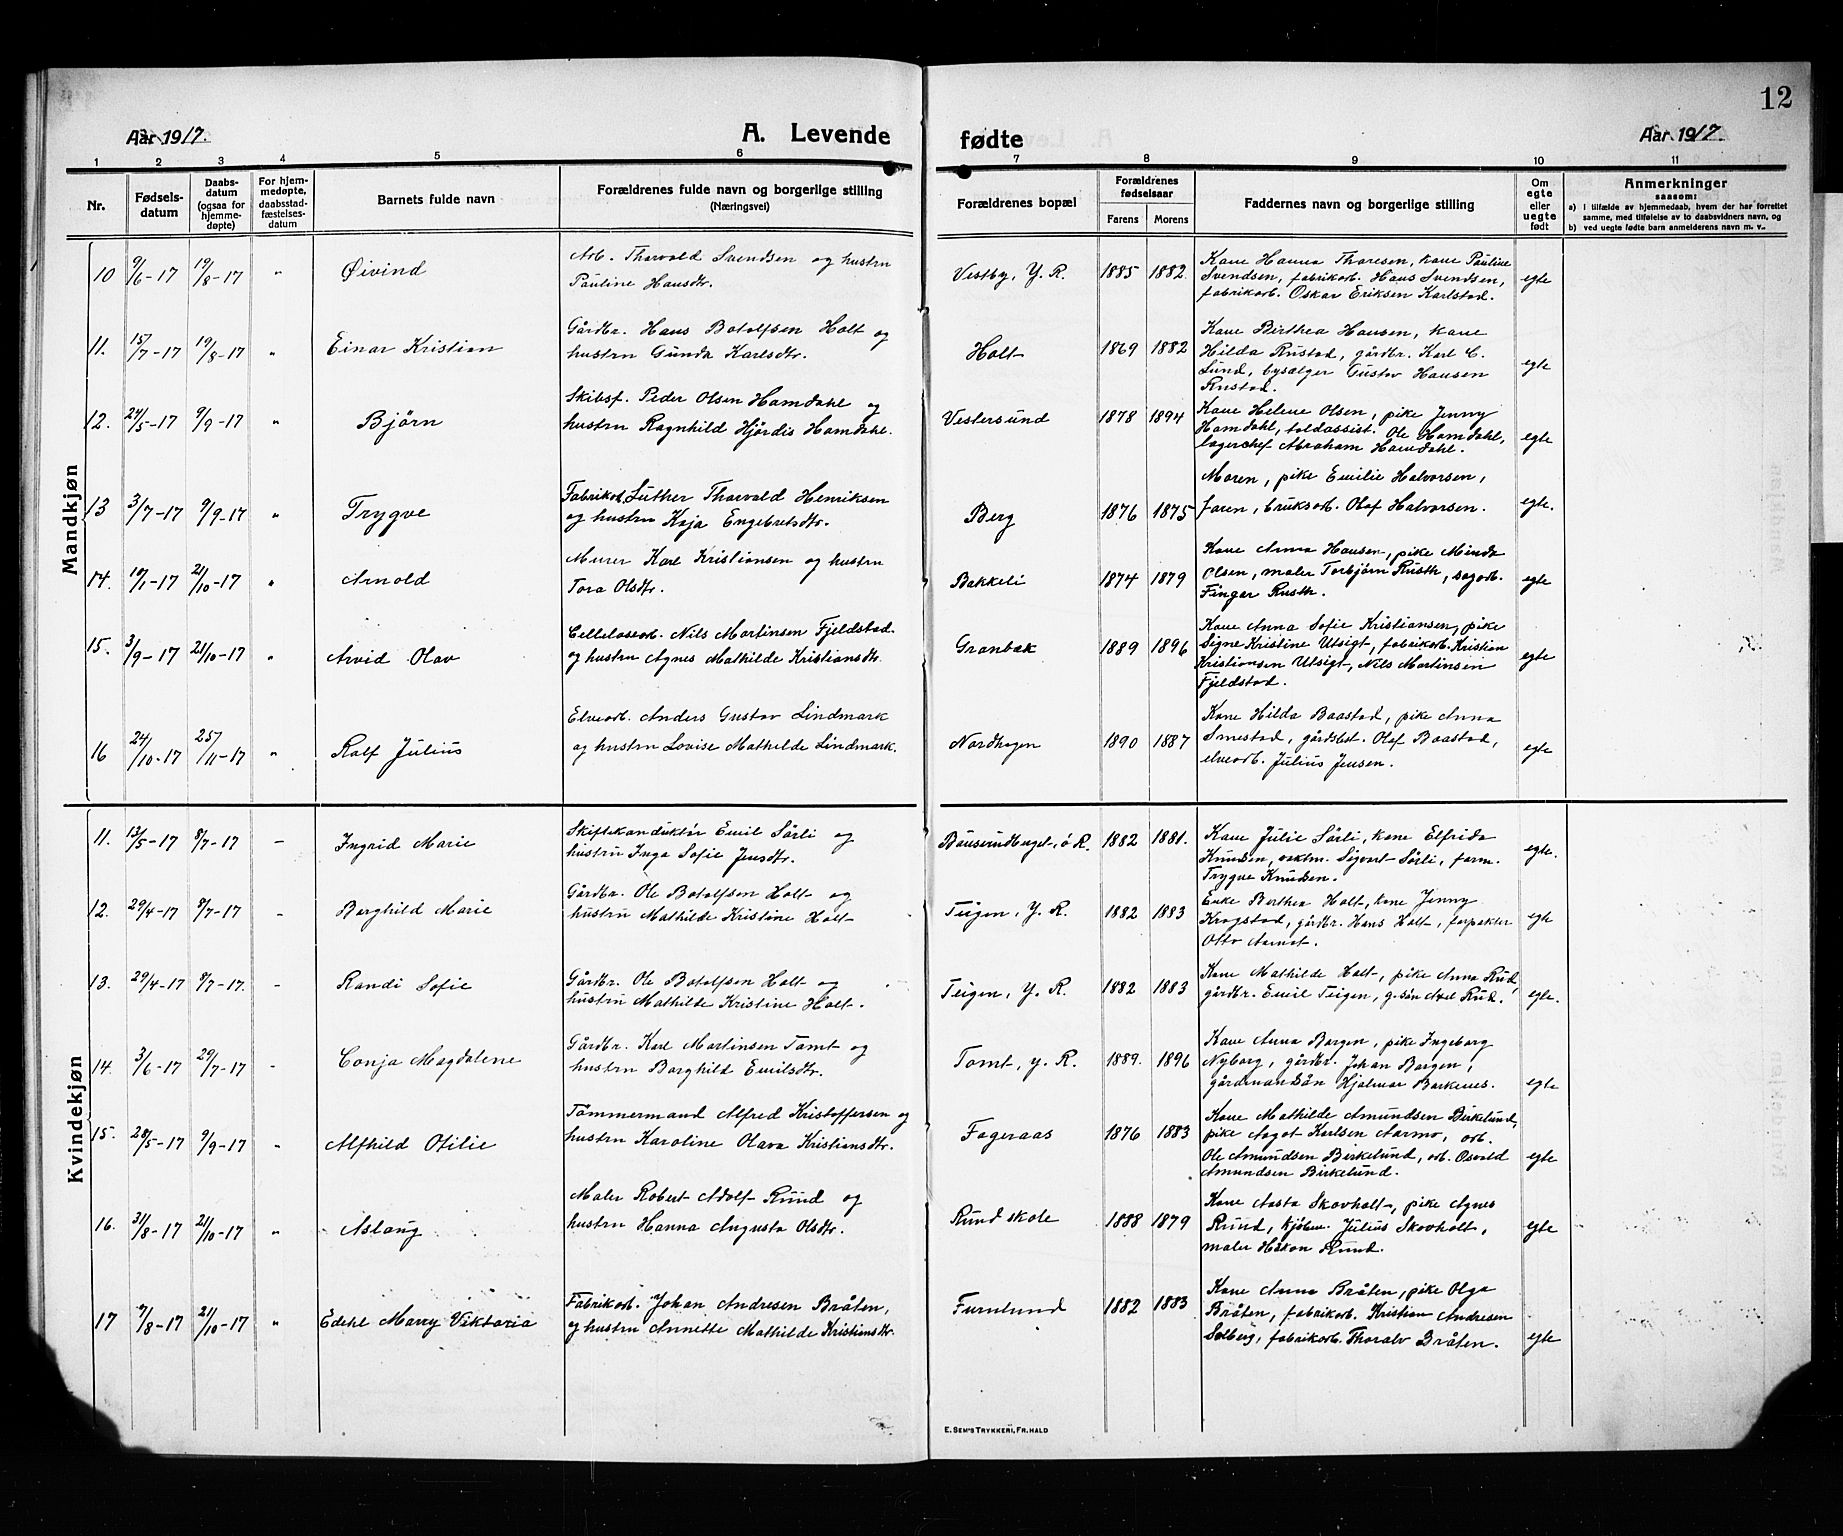 12
Aar 1917. A. Levende fødte Aar 1917.
1 2 3 4 5 6 7 8 9 10 11
Nr. Fødsels-datum Daabs-datum (ogsaa for hjemme-døpte) For hjem-medøpte, daabsstad-fæstelses-datum Barnets fulde navn Forældrenes fulde navn og borgerlige stilling (Næringsvei) Forældrenes bopæl Forældrenes fødselsaar Farens Morens Faddernes navn og borgerlige stilling Om egte eller uegte født Anmerkninger saasom: a) i tilfælde av hjemmedaab, hvem der har forrettet samme, med tilføielse av to daabsvidners navn, og b) ved uegte fødte barn anmelderens navn m. v..
Mandkjøn
10 9/6-17 19/8-17 " Øivind Arb. Thorvald Svendsen og hustru Pauline Hansdtr. Vestby, Y. R. 1885 1882. Kone Hanna Thoresen, kone Pauline Svendsen, fabrikarb. Hans Svendsen, fabrikarb. Oskar Eriksen Karlstad. egte
11. 15/7-17 19/8-17 " Einar Kristian Gårdbr. Hans Botolfsen Holt og hustru Gunda Karlsdtr. Holt 1869 1882 Kone Berthea Hansen, kone Hilda Rustad, gårdbr. Karl C. Lund, bysælger Gustav Hansen Rustad. egte
12. 24/5-17 9/9-17 " Bjørn Skibsf. Peder Olsen Hamdahl og hustru Ragnhild Hjørdis Hamdahl. Vestersund 1878 1894 Kone Helene Olsen, pike Jenny Hamdahl, toldassist. Ole Hamdahl, lagerchef Abraham Hamdahl. egte
13 3/7-17 9/9-17 " Trygve Fabrikarb. Luther Thorvald Henriksen og hustru Kaja Engebretsdtr. Berg 1876 1875 Moren, pike Emilie Halvorsen, faren, bruksarb. Olaf Halvorsen. egte.
14. 19/1-17 21/10-17 " Arnold Murer Karl Kristiansen og hustru Tora Olsdtr. Bakkeli 1874 1879 Kone Anna Hansen, pike Minda Olsen, maler Torbjørn Rusth, sagarb. Fingar Rusth. egte
15. 3/9-17 21/10-17 " Arvid Olav Cellelosearb. Nils Martinsen Fjeldstad og hustru Agnes Mathilde Kristiansdtr. Granbæk 1889 1896 Kone Anna Sofie Kristiansen, pike Signe Kristine Utsigt, fabrikarb. Kristian Kristiansen Utsigt, Nils Martinsen Fjeldstad. egte
16 24/10-17 25/11-17 " Rolf Julius Elvearb. Anders Gustav Lindmark og hustru Lovise Mathilde Lindmark. Nordhagen 1890 1887 Kone Hilda Baastad, pike Anna Smestad, gårdsbest. Olaf Baastad, elvearb. Julius Jensen. egte
Kvindekjøn
11. 13/5-17 8/7-17 - Ingrid Marie Skiftekonduktør Emil Sørli og hustru Inga Sofie Jensdtr. ø R. 1882 1881. Kone Julie Sørli, kone Elfrida Knudsen, vaktm. Sigvart Sørli, form. Trygve Knudsen. egte.
12. 29/4-17 8/7-17 - Borghild Marie Gårdbr. Ole Botolfsen Holt og hustru Mathilde Kristine Holt Teigen, Y. R. 1882 1883 Enke Berthea Holt, kone Jenny Krogstad, gårdbr. Hans Holt, forpakter Otto Aamot. egte
13. 29/4-17 8/7-17. - Randi Sofie Gårdbr. Ole Botolfsen Holt og hustru Mathilde Kristine Holt. Teigen, Y. R. 1882 1883 Kone Mathilde Holt, pike Anna Rud, gårdbr. Emil Teigen, g.søn Axel Rud. egte.
14. 3/6-17 29/7-17 - Conja Magdalene Gårdbr. Karl Martinsen Tomt og hustru Borghild Emilsdtr. Tomt, y. R. 1889. 1896 Kone Anna Borgen, pike Ingeborg Nyborg, gårdbr. Johan Borgen, gårdmandsøn Hjalmar Berkenes. egte
15. 28/5-17 9/9-17 " Alfhild Otilie Tømmermand Alfred Kristoffersen og hustru Karoline Olava Kristiansdtr. Fageraas 1876 1883 Kone Mathilde Amundsen Birkelund, pike Aagot Karlsen Aarmo, arb. Ole Amundsen Birkelund, arb. Osvald Amundsen Birkelund. egte
16. 31/8-17 21/10-17 " Aslaug Maler Robert Adolf Ruud og hustru Hanna Augusta Olsdtr. Ruud skole 1888 1879 Kone Aasta Skovholt, pike Agnes Ruud, kjøbm. Julius Skovholt, maler Håkon Ruud. egte
17 7/8-17 21/10-17 " Edehl Marry Viktoria Fabrikarb. Johan Andresen Bråten, og hustru Annette Mathilde Kristiansdtr. Furulund 1882 1883 Kone Anna Bråten, pike Olga Bråten, fabrikarb. Kristian Andresen Solberg, fabrikarb. Thoralv Bråten. egte
E. SEM'S TRYKKERI, FR. HALD